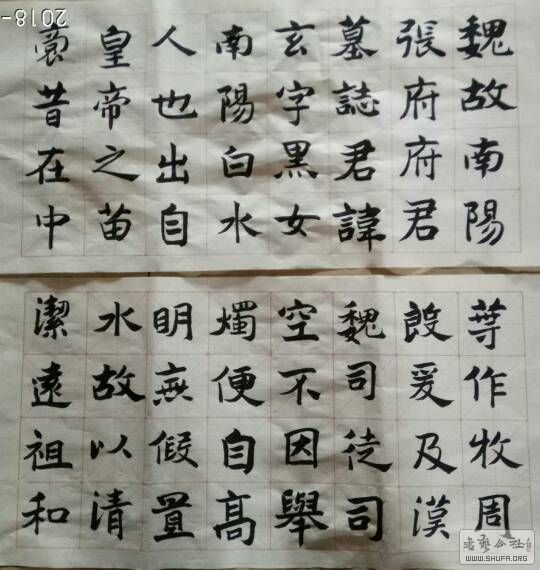 魏故南陽
張府府君
墓誌君諱
玄字黑女
南陽白水
人也出自
皇帝之苗
裔昔在中
葉作牧周
殷爰及漢
魏司徒司
空不因舉
燭便自高
眀無假置
水故以清
潔遠祖和
2018-
书艺公社
WWW.SHUFA.ORG